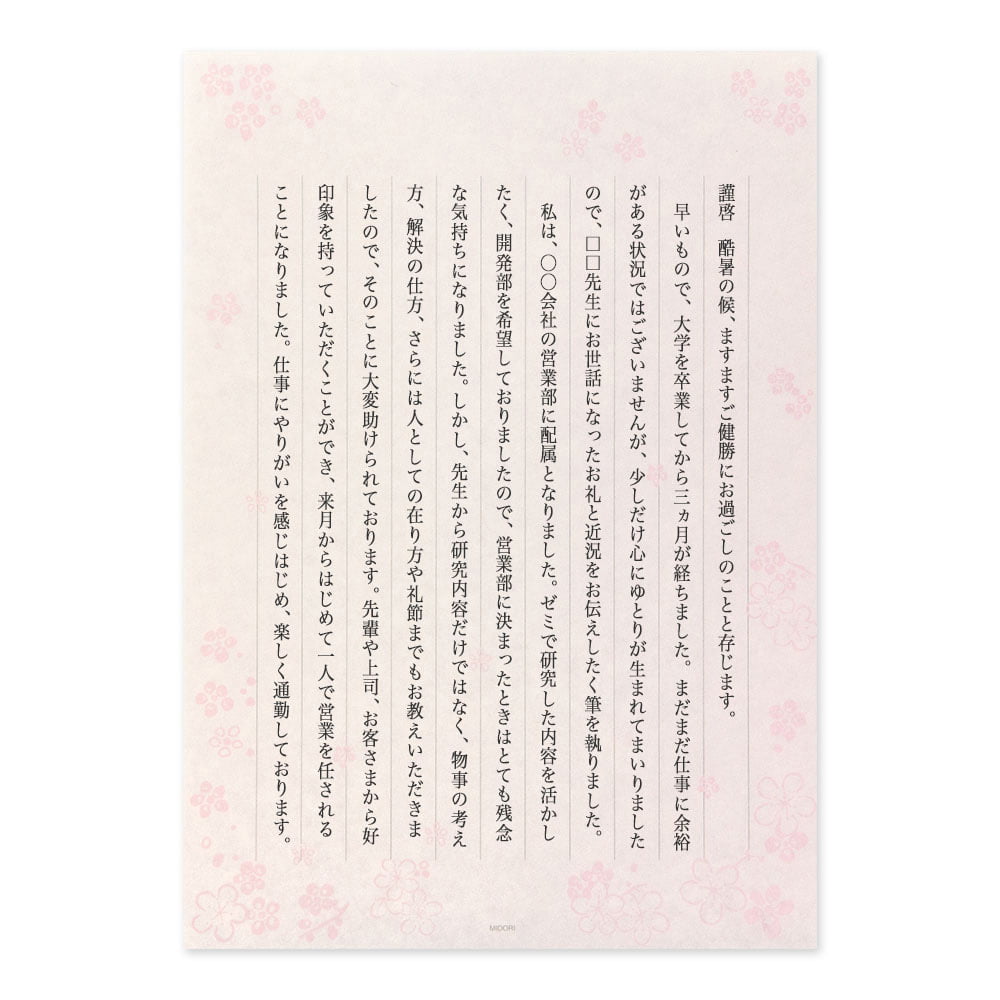 謹啓　酷暑の候、ますますご健勝にお過ごしのことと存じます。
　早いもので、大学を卒業してから三ヵ月が経ちました。まだまだ仕事に余裕
がある状況ではございませんが、少しだけ心にゆとりが生まれてまいりました
ので、□□先生にお世話になったお礼と近況をお伝えしたく筆を執りました。
　私は、〇〇会社の営業部に配属となりました。ゼミで研究した内容を活かし
たく、開発部を希望しておりましたので、営業部に決まったときはとても残念
な気持ちになりました。しかし、先生から研究内容だけではなく、物事の考え
方、解決の仕方、さらには人としての在り方や礼節までもお教えいただきま
したので、そのことに大変助けられております。先輩や上司、お客さまから好
印象を持っていただくことができ、来月からはじめて一人で営業を任される
ことになりました。仕事にやりがいを感じはじめ、楽しく通勤しております。
MIDORI